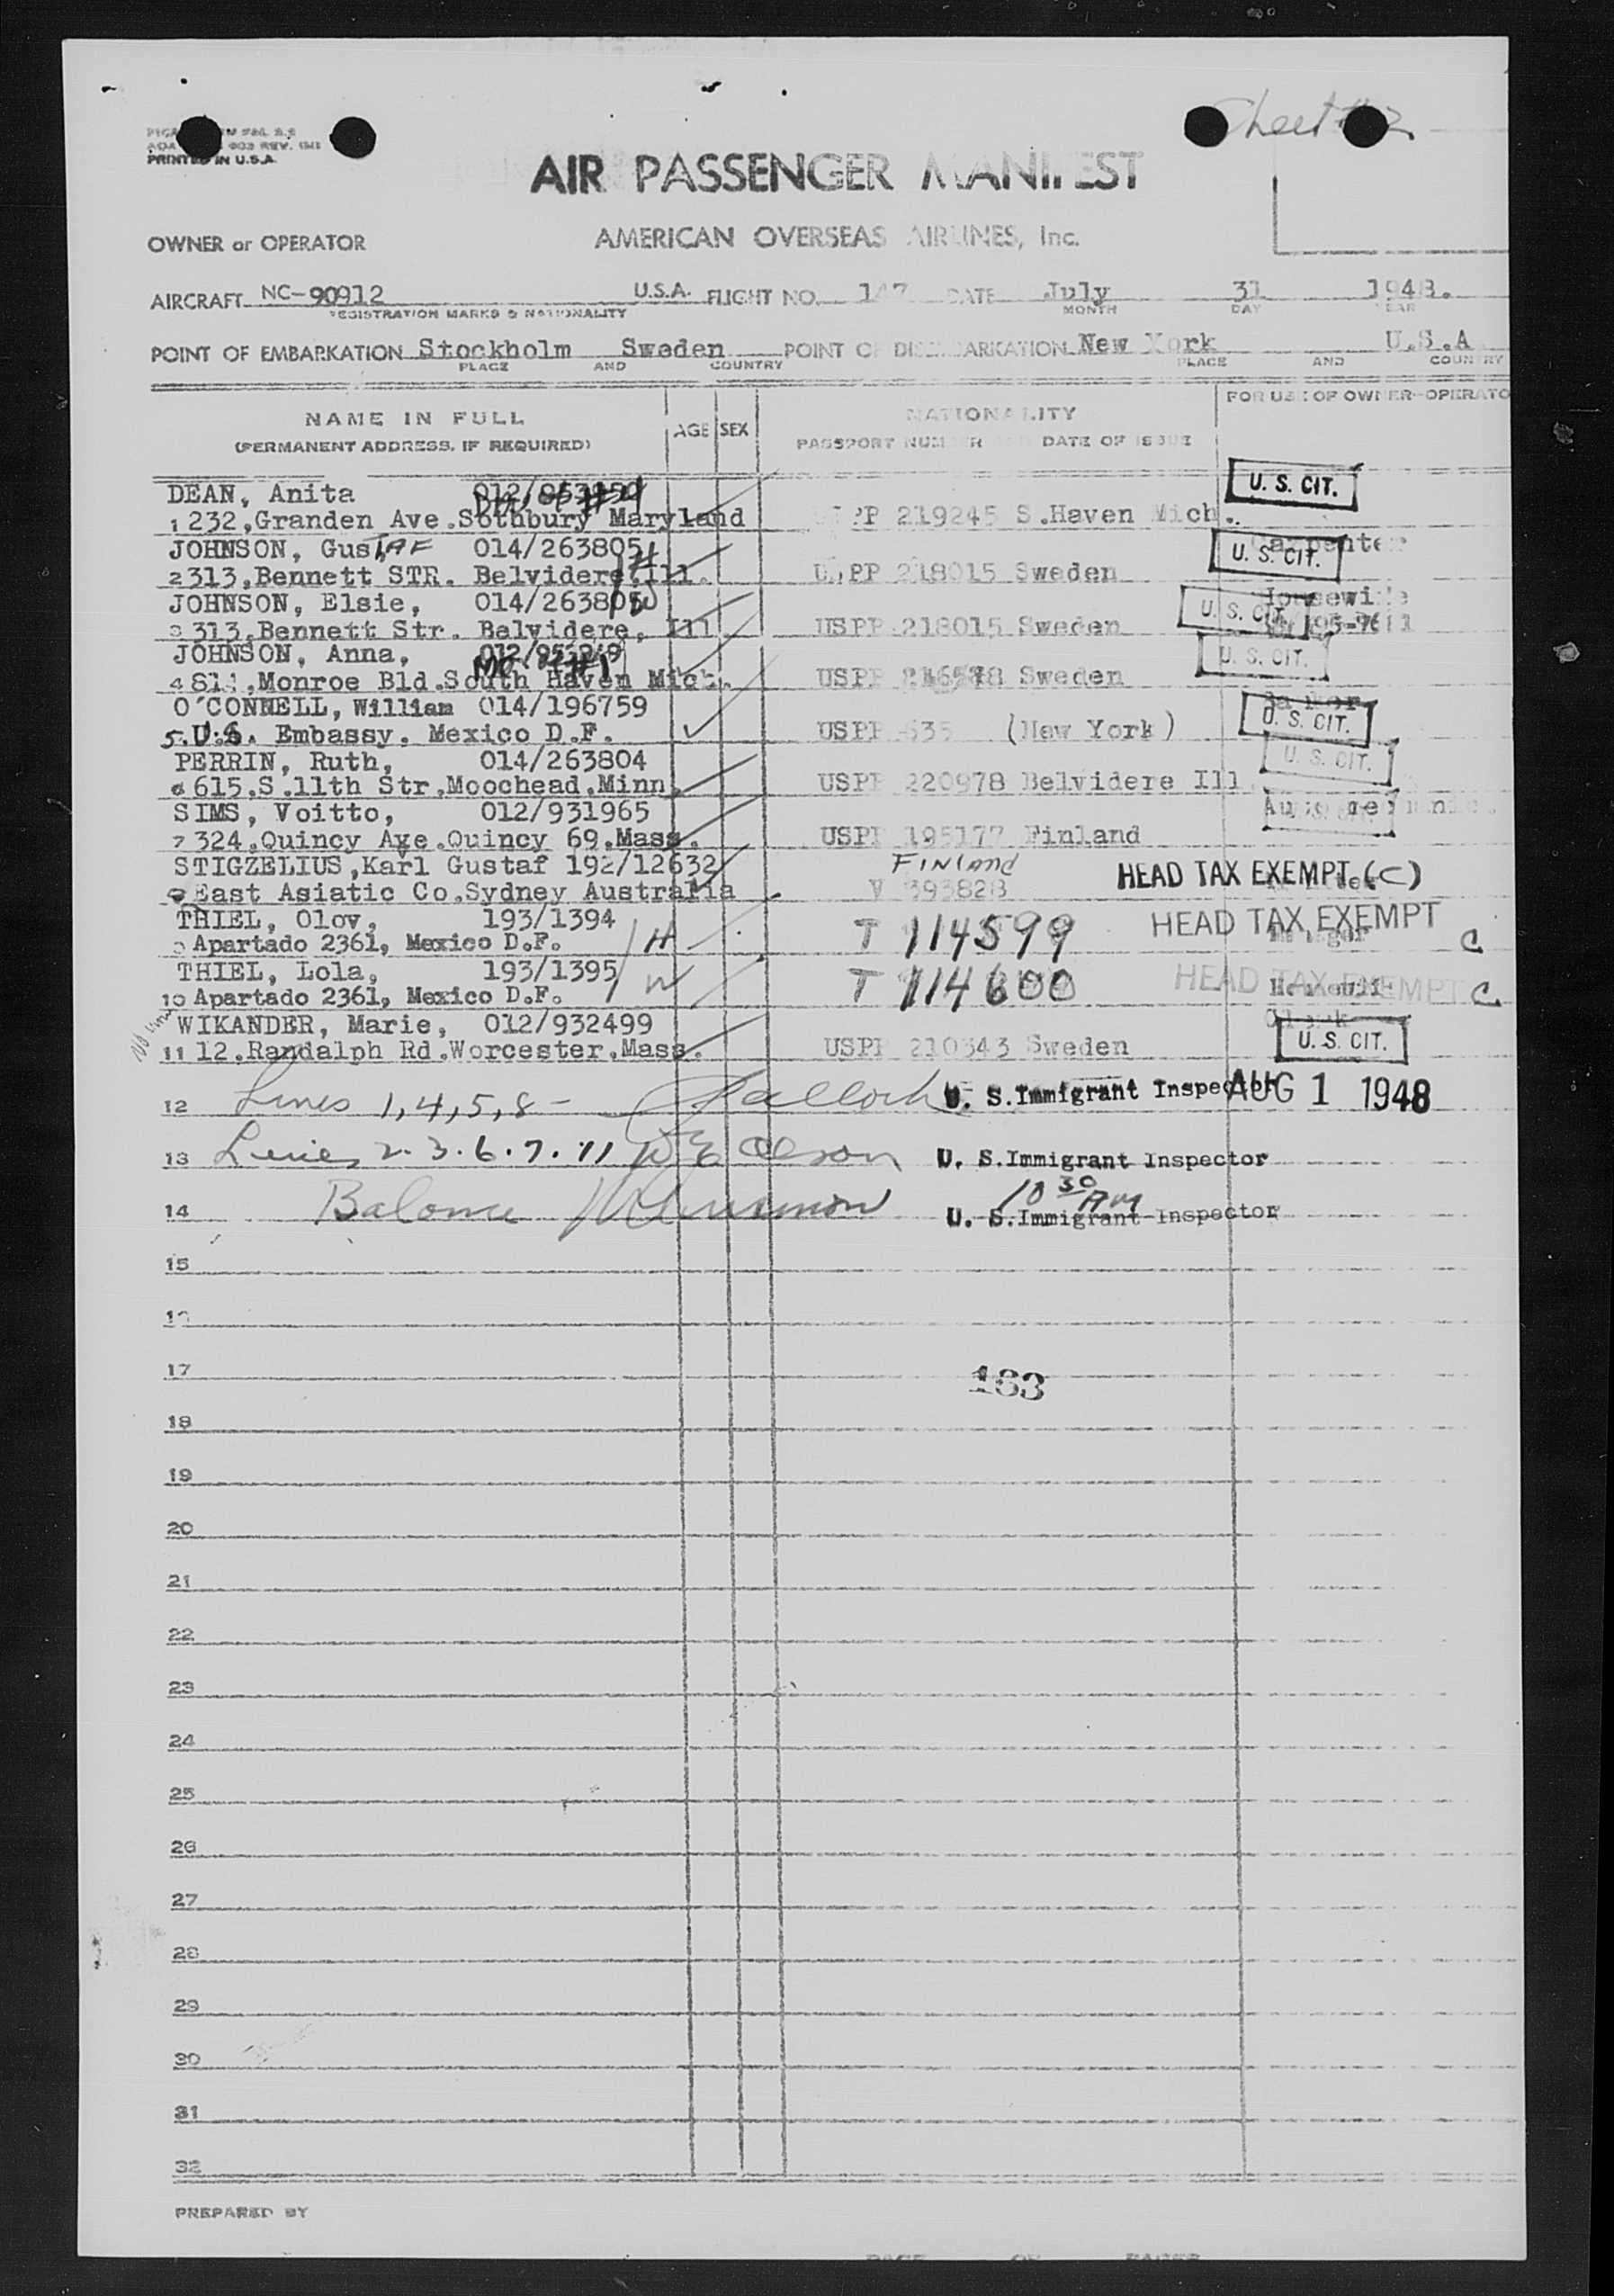 Sheet #2
PRINTED IN U.S.A.
AIR PASSENGER MANIFEST
OWNER or OPERATOR AMERICAN OVERSEAS AIRLINES, Inc.
AIRCRAFT NC-90912 U.S.A. FLIGHT NO. 147 DATE July 31 1948.
REGISTRATION MARKS & NATIONALITY MONTH DAY YEAR
POINT OF EMBARKATION Stockholm Sweden POINT OF DISEMBARKATION New York U.S.A
PLACE AND COUNTRY PLACE AND COUNTRY
NAME IN FULL AGE SEX NATIONALITY FOR USE OF OWNER-OPERATO
(PERMANENT ADDRESS, IF REQUIRED) PASSPORT NUMBER AND DATE OF ISSUE
DEAN, Anita U. S. CIT.
1 232,Granden Ave.Sothbury Maryland PP 219245 S.Haven Mich.
JOHNSON, GusTAF 014/263805 H Carpenter U. S. CIT.
2 313,Bennett STR. Belvidere,Ill. USPP 218015 Sweden
JOHNSON, Elsie, 014/263805 W Housewife U. S. CIT.
3 313,Bennett Str. Belvidere, Ill USPP 218015 Sweden
JOHNSON, Anna, U. S. CIT.
4 ,Monroe Bld.South Haven Mich. USPP Sweden
O'CONNELL, William 014/196759 U. S. CIT.
5 U.S. Embassy. Mexico D.F. USPP 635 (New York)
PERRIN, Ruth, 014/263804 U. S. CIT.
6 615,S.11th Str,Moochead,Minn. USPP 220978 Belvidere Ill.
SIMS, Voitto, 012/931965
7 324,Quincy Axe.Quincy 69.Mass. USPP 195177 Finland
STIGZELIUS,Karl Gustaf 192/12632 FINland HEAD TAX EXEMPT (C)
8 East Asiatic Co.Sydney Australia V 393828
THIEL, Olov, 193/1394 HEAD TAX EXEMPT
9 Apartado 2361, Mexico D.F. H T 114599 C
THIEL, Lola, 193/1395 HEAD TAX EXEMPT
10 Apartado 2361, Mexico D.F. W T 114600 C
WIKANDER, Marie, 012/932499 Clerk
11 12.Randalph Rd.Worcester.Mass. USPP 210343 Sweden U. S. CIT.
12 Lines 1,4,5,8- U. S.Immigrant Inspector AUG 1 1948
13 Lines 2.3.6.7.11 U. S.Immigrant Inspector
10 30 AM
14 Balance U. S.Immigrant Inspector
15
16
17 163
18
19
20
21
22
23
24
25
26
27
28
29
30
31
32
PREPARED BY
PAGE OF PAGES